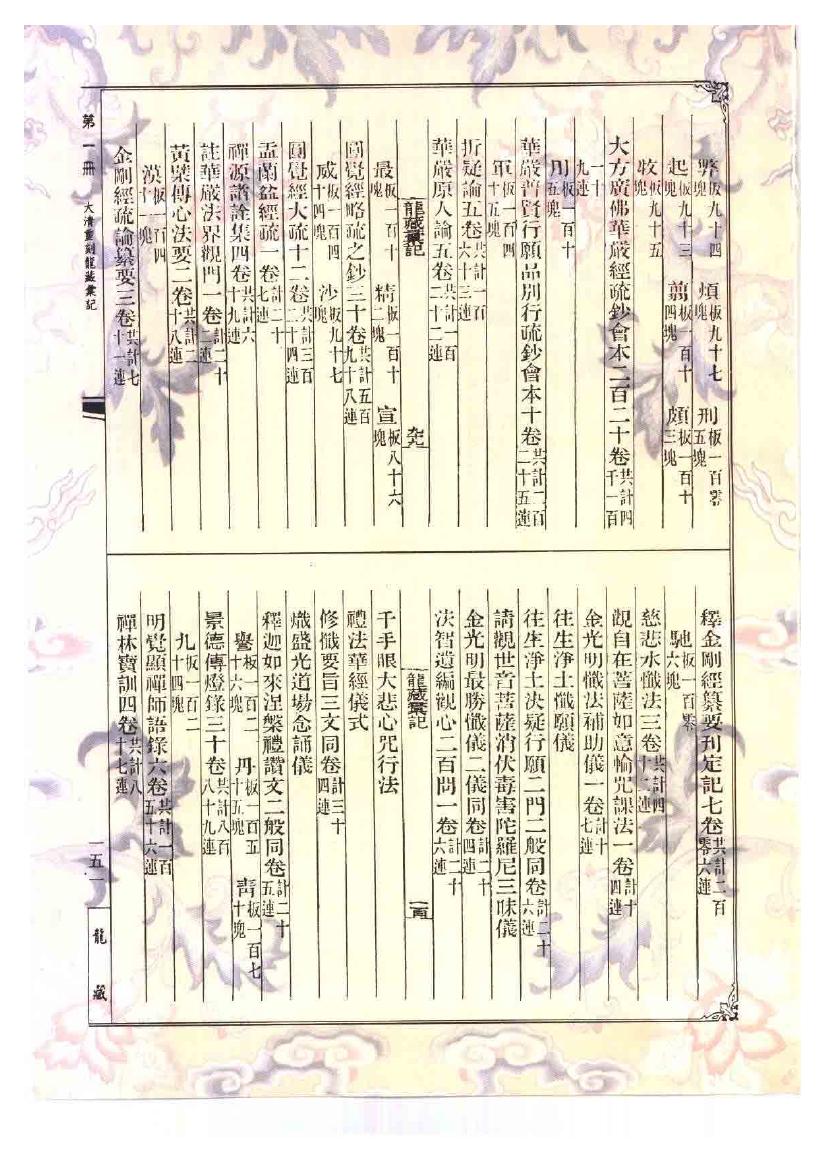 弊板九十四塊　煩板九十七塊　刑板一百零五塊
起板九十三塊　翦板一百十四塊　頗板一百十三塊
牧板九十五塊
大方廣佛華嚴經疏鈔會本二百二十卷共計四千一百
一十九連
用板一百十五塊
華嚴普賢行願品別行疏鈔會本十卷共計二百二十五連
軍板一百四十五塊
折疑論五卷共計一百六十三連
華嚴原人論五卷共計一百二十二連
龍藏彙記
九六
最板一百十塊　精板一百十二塊　宣板八十六塊
圓覺經略疏之鈔三十卷共計五百九十八連
威板一百四十四塊　沙板九十七塊
圓覺經大疏十二卷共計三百二十四連
盂蘭盆經疏一卷計二十七連
禪源諸詮集四卷共計六十九連
註華嚴法界觀門一卷計二十二連
黃檗傳心法要二卷共計二十八連
漠板一百四十一塊
金剛經疏論纂要三卷共計七十一連
釋金剛經纂要刊定記七卷共計二百零六連
馳板一百零六塊
慈悲水懺法三卷共計四十二連
觀自在菩薩如意輪咒課法一卷計十四連
金光明懺法補助儀一卷計十七連
往生淨土懺願儀
往生淨土決疑行願二門二般同卷計二十六連
請觀世音菩薩消伏毒害陀羅尼三昧儀
金光明最勝懺儀二儀同卷計二十四連
法智遺編觀心二百問一卷計二十六連
龍藏彙記
一百
千手眼大悲心咒行法
禮法華經儀式
修懺要旨三文同卷計三十四連
熾盛光道場念誦儀
釋迦如來涅槃禮讚文二般同卷計二十五連
譽板一百二十六塊　丹板一百五十五塊　青板一百七十塊
景德傳燈錄三十卷共計八百八十九連
九板一百二十四塊
明覺顯禪師語錄六卷共計一百五十六連
禪林寶訓四卷共計八十七連
第一冊　大清重刻龍藏彙記
一五一
龍藏